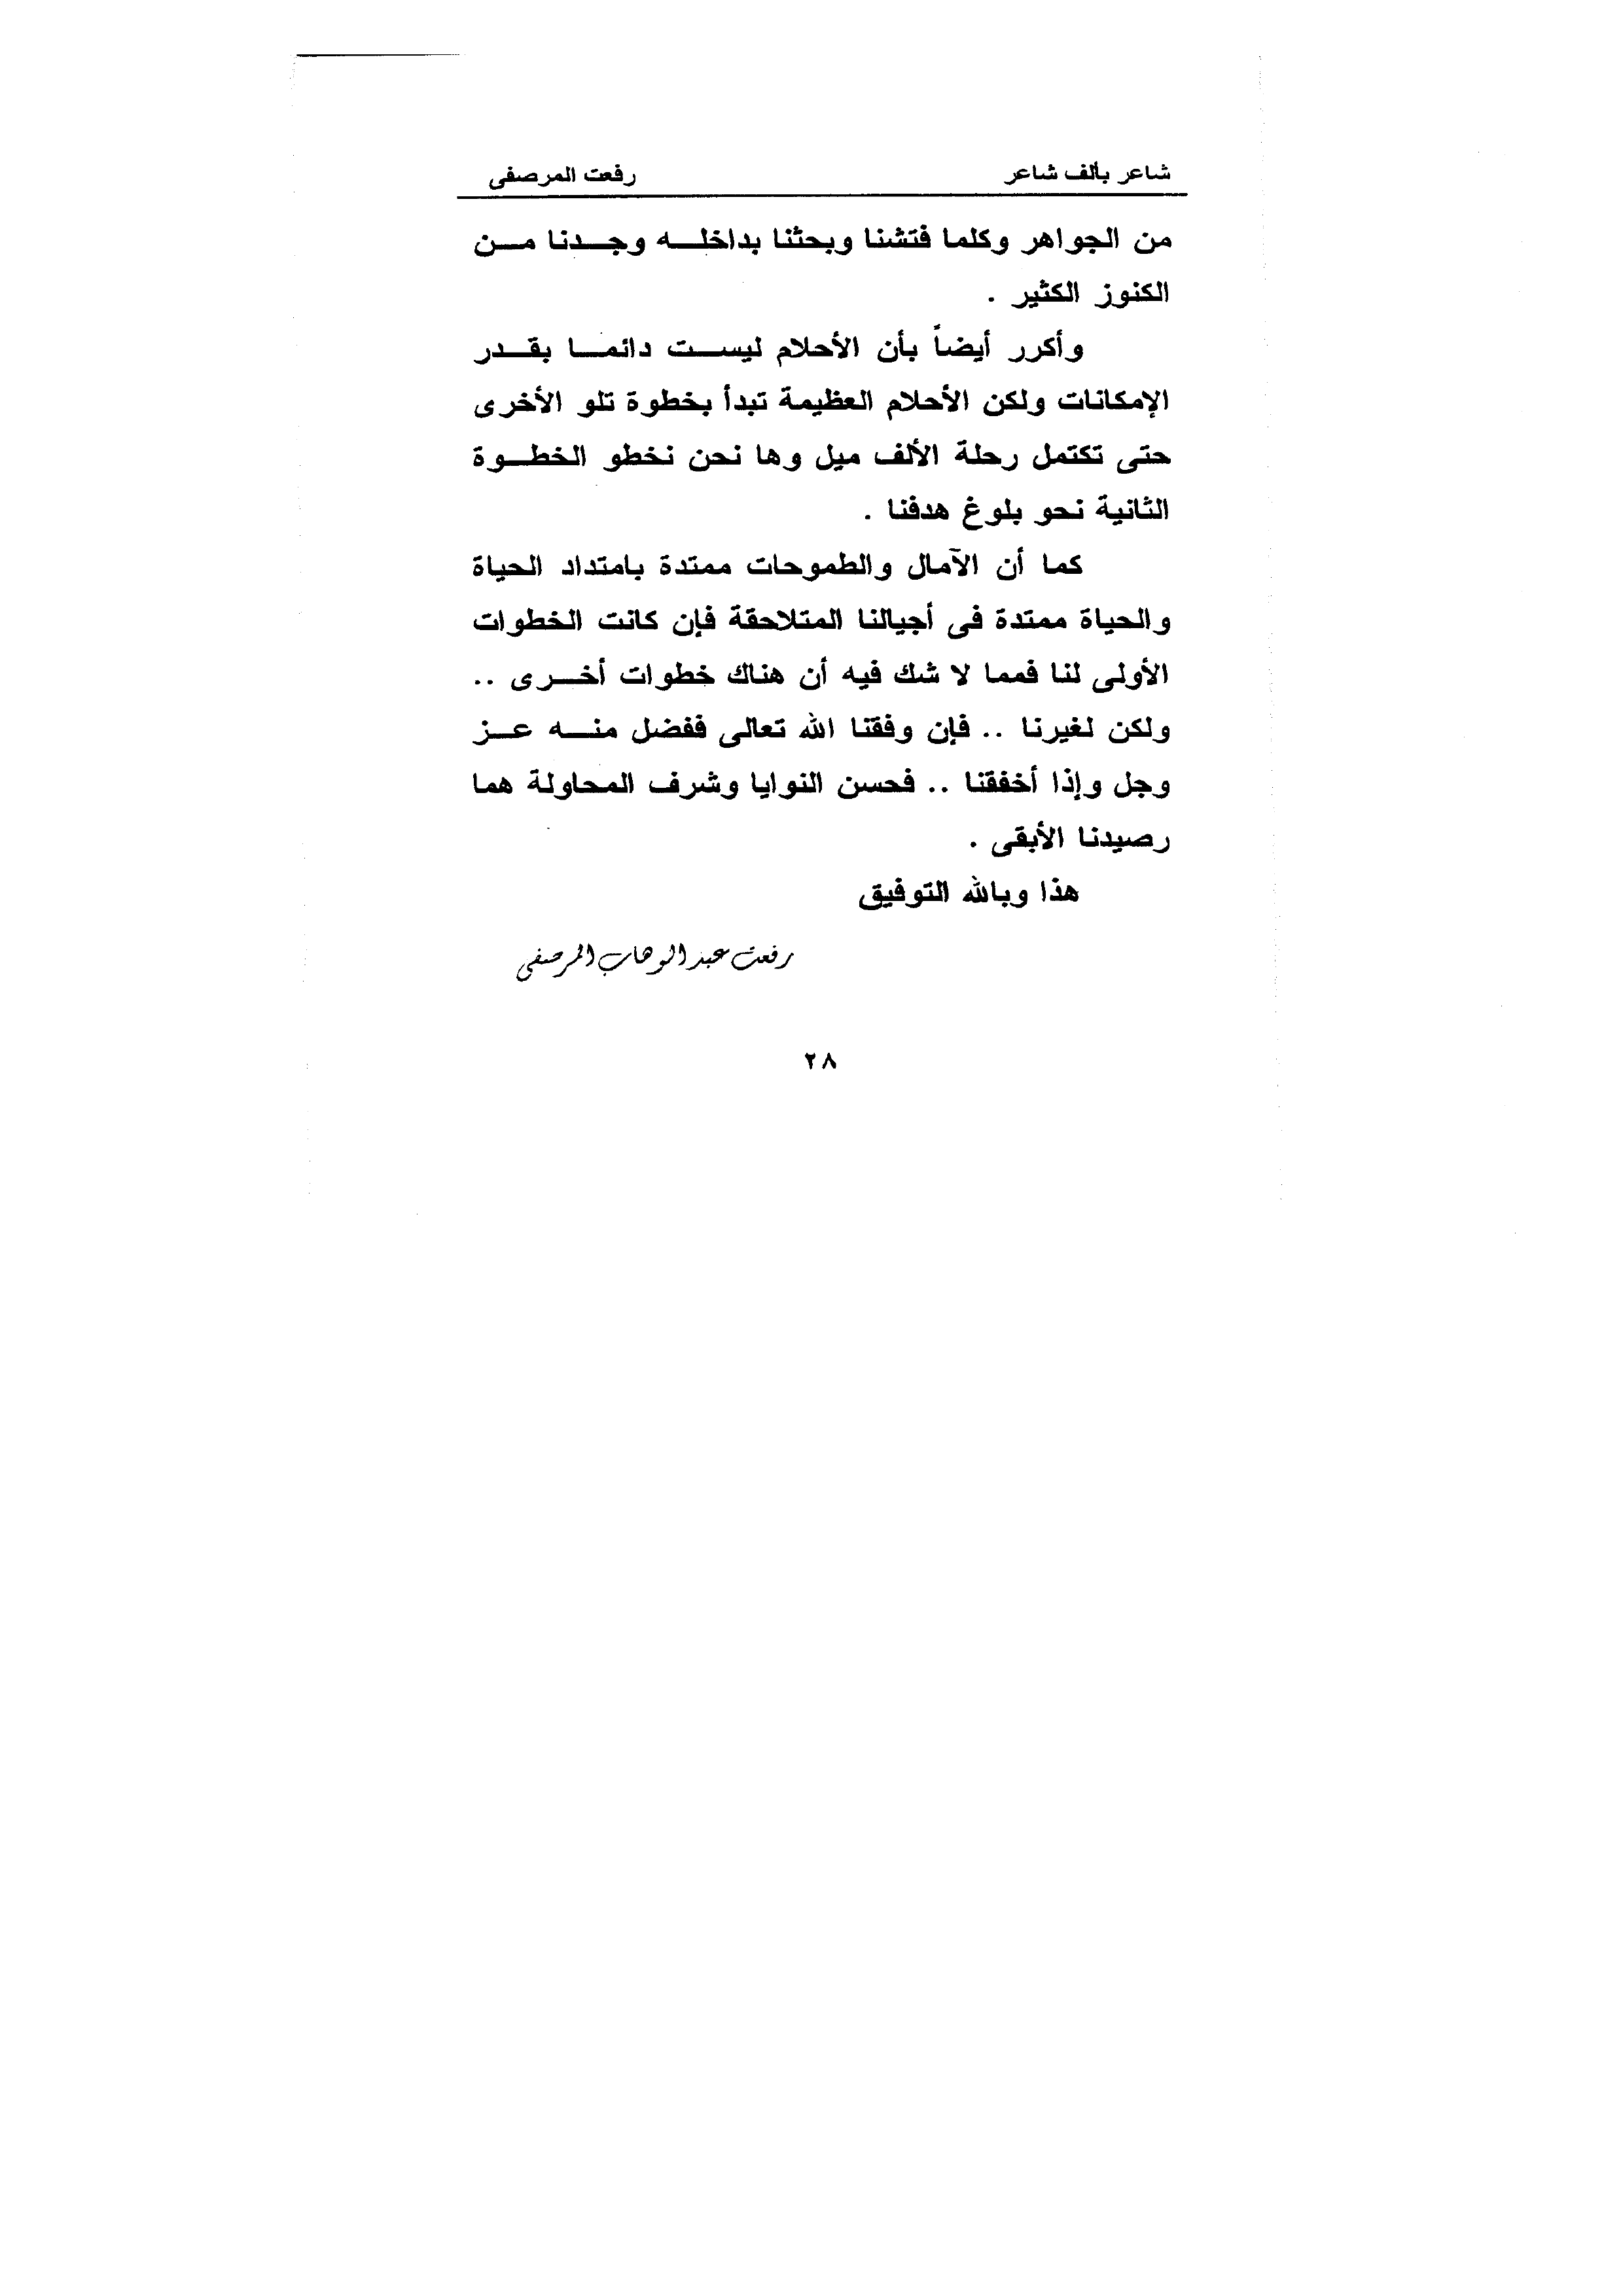 شاعر بألف شاعر رفعت المرصفى
من الجواهر وكلما فتشنا وبحثنا بداخله وجدنا من
الكنوز الكثير .
وأكرر أيضاً بأن الأحلام ليست دائما بقدر
الإمكانات ولكن الأحلام العظيمة تبدأ بخطوة تلو الأخرى
حتى تكتمل رحلة الألف ميل وها نحن نخطو الخطوة
الثانية نحو بلوغ هدفنا .
كما أن الآمال والطموحات ممتدة بامتداد الحياة
والحياة ممتدة فى أجيالنا المتلاحقة فإن كانت الخطوات
الأولى لنا فمما لا شك فيه أن هناك خطوات أخرى ..
ولكن لغيرنا .. فإن وفقنا الله تعالى ففضل منه عز
وجل وإذا أخفقنا .. فحسن النوايا وشرف المحاولة هما
رصيدنا الأبقى .
هذا وبالله التوفيق
رفعت عبد الوهاب المرصفى
٢٨